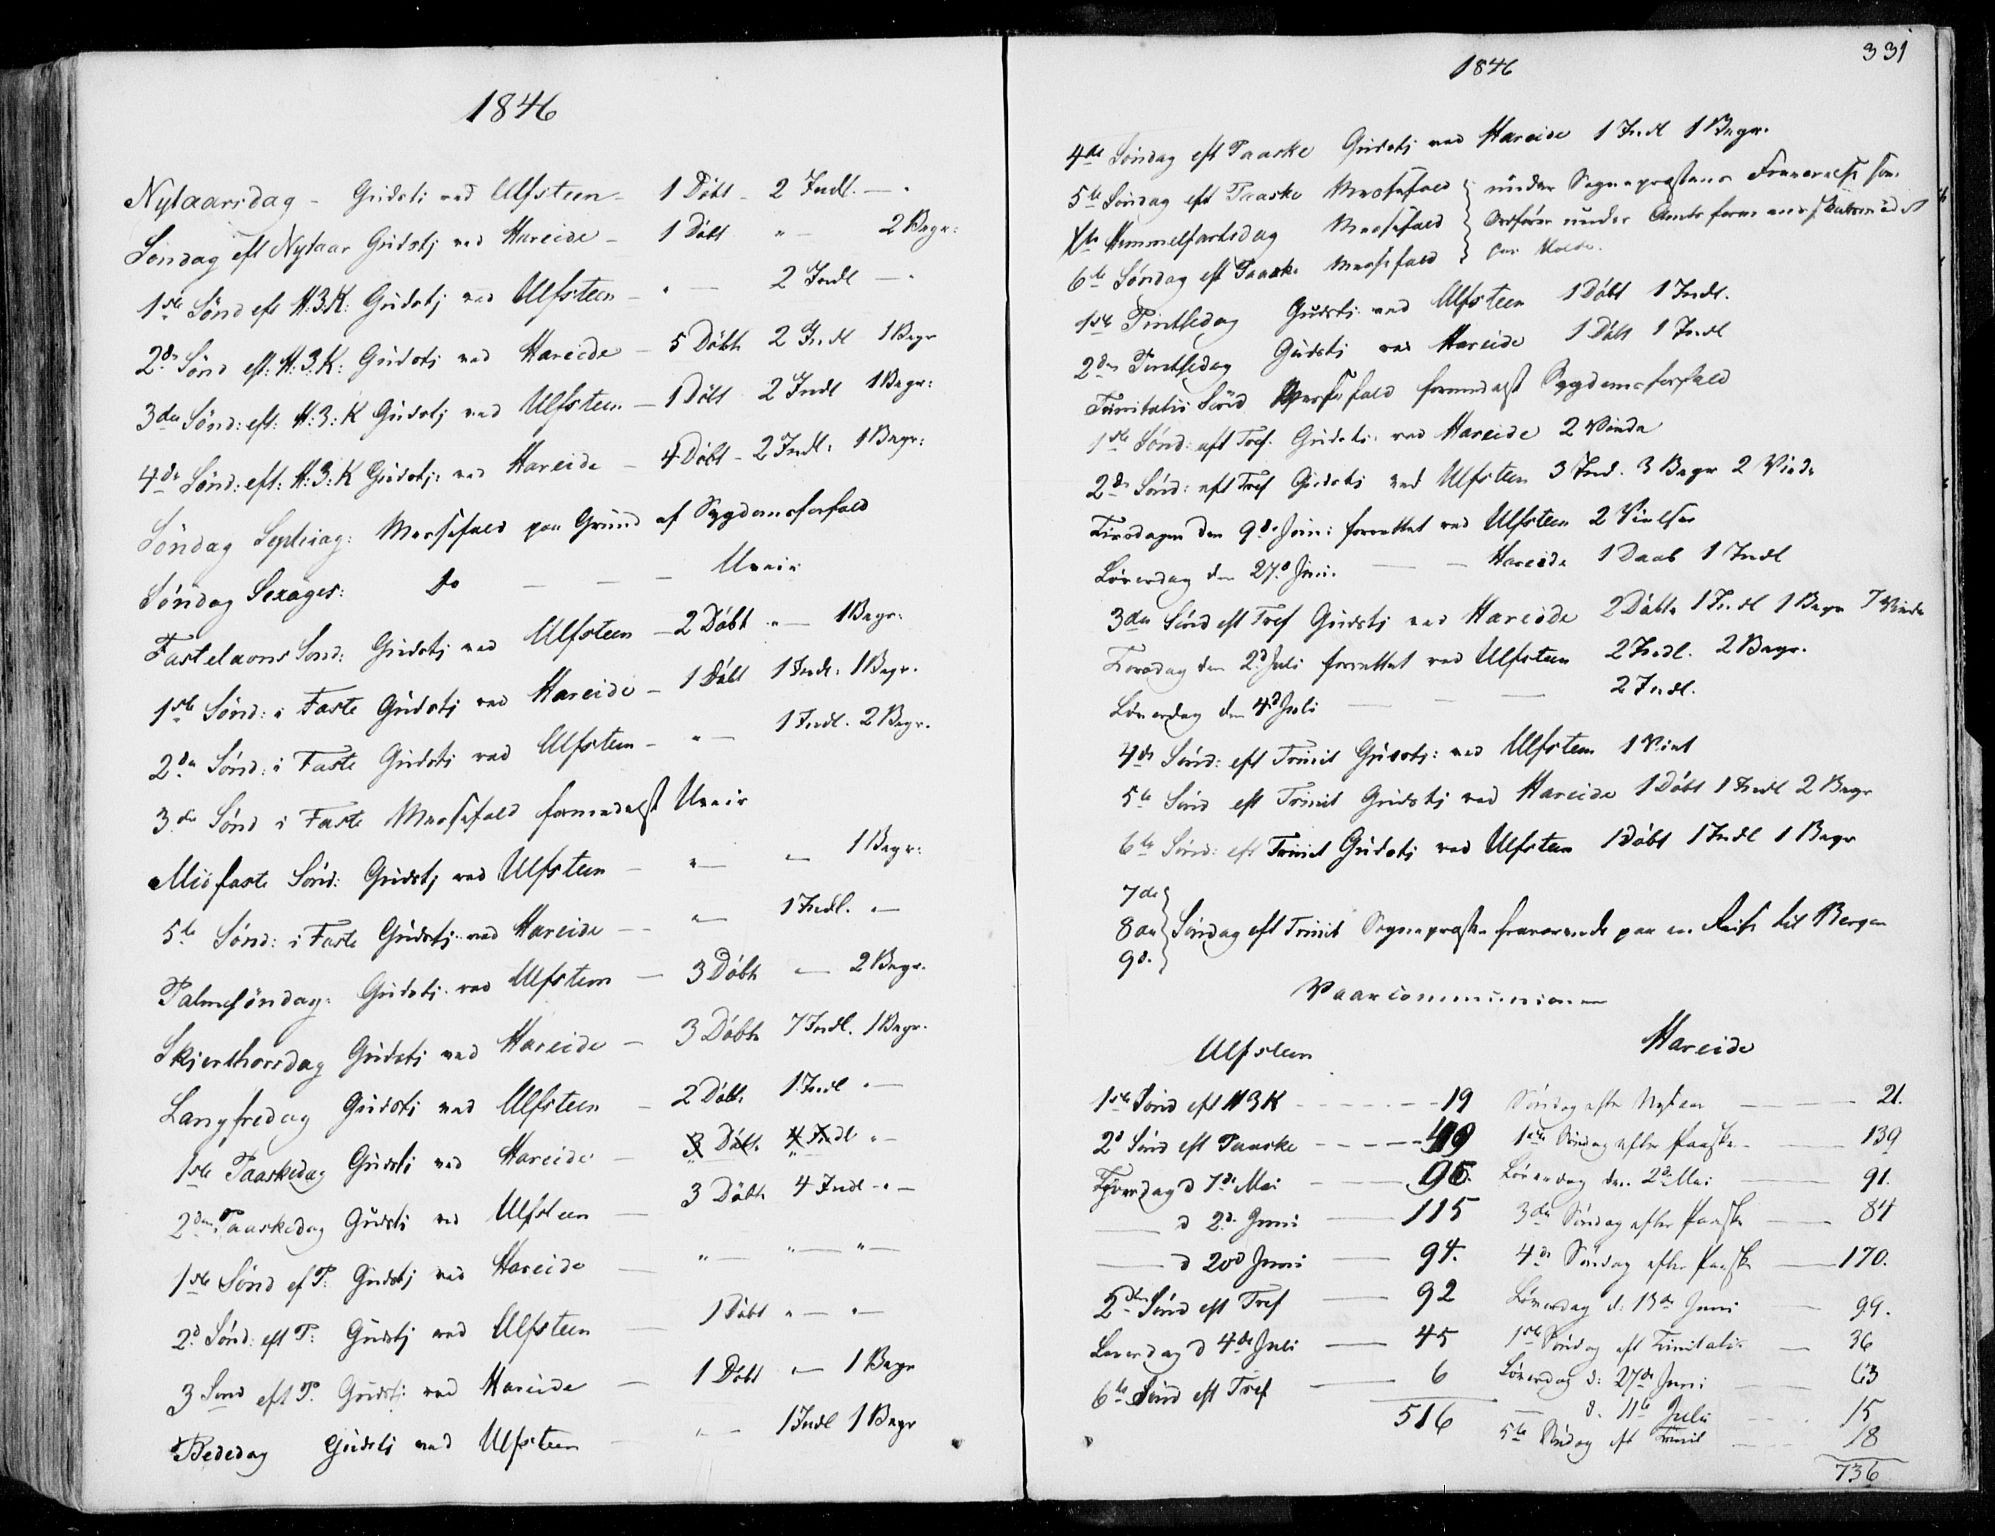 1846
Nytaarsdag - Gudstj ved Ulfsteen - 1 Döbt - 2 Indl. — "
Söndag eft Nytaar Gudstj ved Hareide - 1 Döbt " — 2 Begr:
1ste Sönd eft H.3.K: Gudstj ved Ulfsteen - " — 2 Indl — "
2d Sönd eft: H.3.K: Gudstj ved Hareide - 5 Döbte 2 Indl 1 Begr
3die Sönd: eft: H:3:K Gudstj ved Ulfsteen - 1 Döbt 2 Indl 1 Begr:
4de Sönd: eft: H:3:K Gudstj: ved Hareide - 4 Döbt - 2 Indl: 1 Begr:
Söndag Septuag: Messefald paa Grund af Sygdomsforfald
Söndag Sexages: do — — — Uveir
Fastelavns Sönd: Gudstj ved Ulfsteen - 2 Döbt " — 1 Begr:
1ste Sönd: i Faste Gudstj ved Hareide - 1 Döbt 1 Indl: 1 Begr.
2den Sönd: i Faste Gudstj ved Ulfsteen - " — 1 Indl. 2 Begr.
3die Sönd i Faste Messefald formedelst Uveir
Midfaste Sönd: Gudstj ved Ulfsteen - " — " — 1 Begr:
5te Sönd: i Faste Gudstj ved Hareide - " — 1 Indl. " —
Palmesöndag: Gudstj ved Ulfsteen — 3 Döbte " — 2 Begr.
Skjerthorsdag Gudstj ved Hareide — 3 Döbte 7 Indl. 1 Begr.
Langfredag Gudstj ved Ulfsteen - 2 Döbte 1 Indl " —
1ste Paaskedag Gudstj ved Hareide - 3 Döbte 4 Indl " —
2den Paaskedag Gudstj ved Ulfsteen — 3 Döbte 4 Indl - " —
1ste Sönd ef P: Gudstj ved Hareide — " — " — " —
2d Sönd: eft P: Gudstj ved Ulfsteen — 1 Döbt " — " —
3 Sönd eft P. Gudstj: ved Hareide — 1 Döbt " — 1 Begr
Bededag Gudstj ved Ulfsteen - " — 1 Indl 1 Begr
331
1846
4de Söndag eft Paaske Gudstj ved Hareide 1 Indl 1 Begr.
5te Söndag eft Paaske Messefald } under Sognepræstens Fraværelse som
Chr Himmelfartsdag Messefald } Ordförer under Amtsformandskabsmödet
6te Söndag eft Paaske Messefald } paa Molde.
1ste Pintsedag Gudstj ved Ulfsteen 1 Döbt 1 Indl.
2den Pintsedag Gudstj ved Hareide 1 Döbt 1 Indl
Trinitatis Sönd Messefald formedelst Sygdomsforfald
1ste Sönd: eft Tref. Gudstj: ved Hareide 2 Viede
2de Sönd: eft Tref Gudstj ved Ulfsteen 3 Ind. 3 Begr 2 Viede
Tirsdagen den 9de Juni: forrettet ved Ulfsteen 2 Vielser
Löverdag den 27d Juni. — — Hareide 1 Daab 1 Indl
3die Sönd eft Tref Gudstj ved Hareide 2 Döbte 1 Indl 1 Begr 7 Viede
Torsdag den 2d Juli forrettet ved Ulfsteen 2 Indl. 2 Begr.
Löverdag den 4d Juli — — — 2 Indl.
4de Sönd: eft Trinit Gudstj: ved Ulfsteen 1 Viet
5te Sönd eft Trinit Gudstj ved Hareide 1 Döbt 1 Indl 2 Begr
6te Sönd: eft Trinit Gudstj ved Ulfsteen 1 Döbt 1 Indl 1 Begr
7de
8de } Söndag eft Trinit Sognepræsten fraværende paa en Reise til Bergen
9d.
Vaarcommunionen
Ulfsteen
1ste Sönd eft H3K - - - - - 19
2d Sönd eft Paaske - - - - 49
d 1ste Mai — 95.
— d 2d. Juni — 115
— d 20d Juni — 94.
2den Sönd eft Tref — 92
Löverdag d 4de Juli — 45
6te Sönd eft Tref — 6
516
Hareide
Söndag efter Nytaar — 21.
1ste Söndag efter Paaske - 139
Löverdag den 2d Mai — 91.
3die Söndag efter Paaske — 84
4de Söndag efter Paaske — 170.
Löverdag d: 13de Juni — 99.
1ste Söndag eft Trinitatis — 36
Löverdag d: 27de Juni — 63
— d. 11te Juli - - - 15
5te Söndag eft Trinit — 18
736